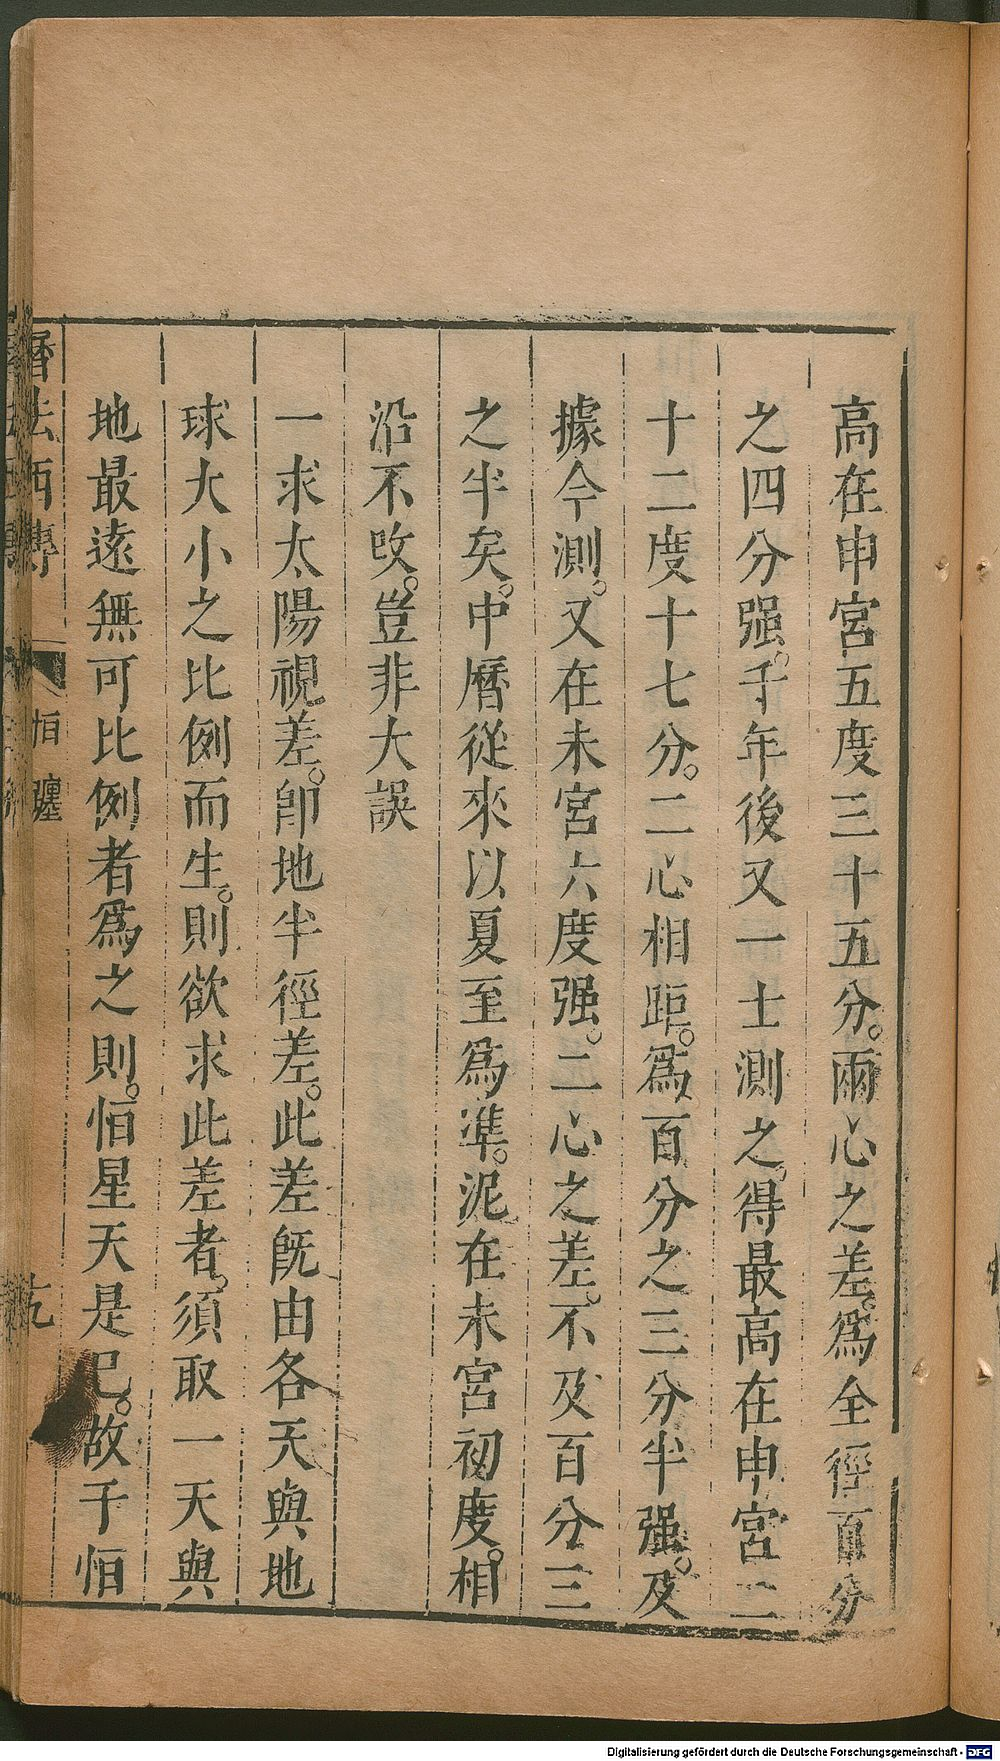 高在申宮五度三十五分。兩心之差。爲全徑百分
之四分强。千年後又一士測之。得最高在申宮二
十二度十七分。二心相距。爲百分之三分半强。及
據今測。又在未宮六度强。二心之差。不及百分三
之半矣。中曆從來以夏至爲準。泥在未宮初度。相
沿不改。豈非大誤
一求太陽視差。卽地半徑差。此差旣由各天與地
球大小之比例而生。則欲求此差者。須取一天與
地最遠無可比例者爲之則。恒星天是已。故于恒
曆法西傳
恒
九
Digitalisierung gefördert durch die Deutsche Forschungsgemeinschaft - DFG